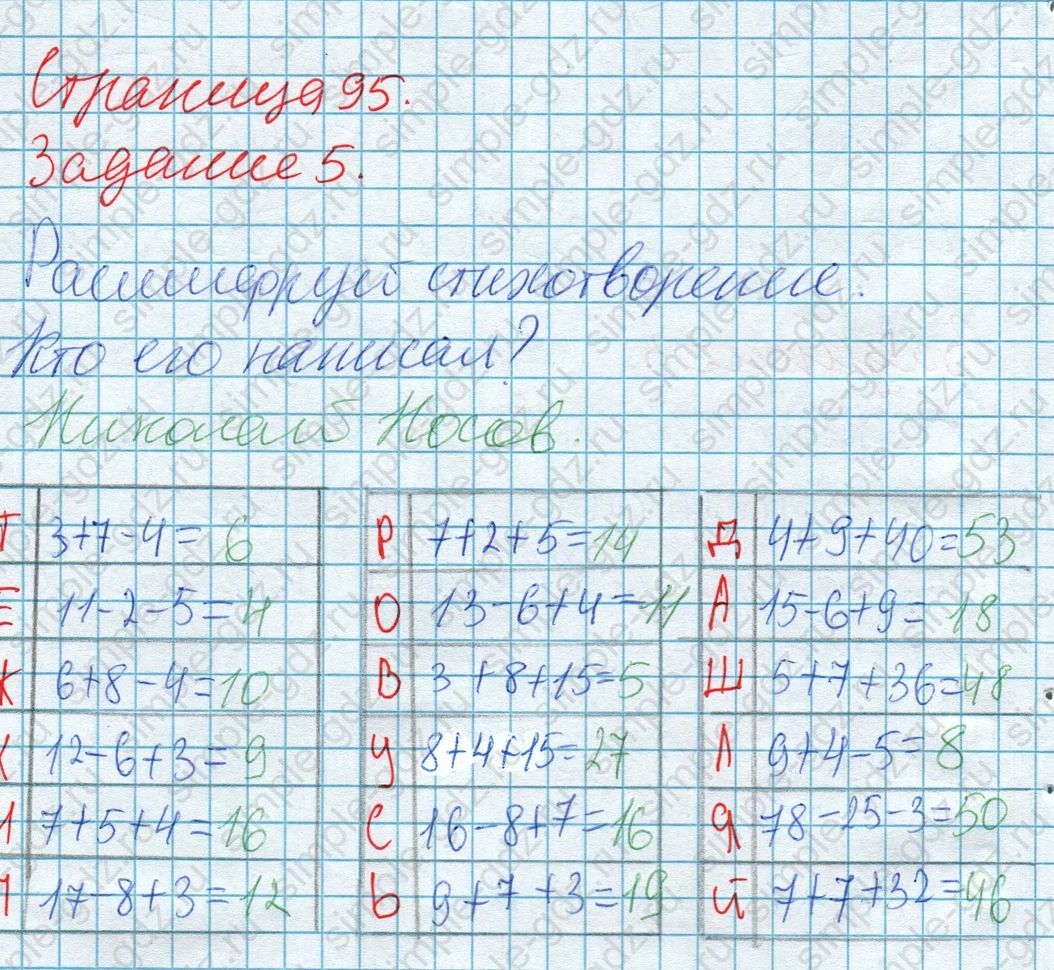 Страница 95.
Задание 5.
Расшифруй стихотворение.
Кто его написал?
Николай Носов.
Т 3+7-4=6 Р 7+2+5=14 Д 4+9+40=53
Е 11-2-5=4 О 13-6+4=11 А 15-6+9=18
К 6+8-4=10 В 3+8+15=5 Ш 5+7+36=48
12-6+3=9 У 8+4+15=27 Л 9+4-5=8
7+5+4=16 С 16-8+7=16 Я 78-25-3=50
17-8+3=12 Ь 9+7+3=19 Й 7+7+32=46
simple-gdz.ru